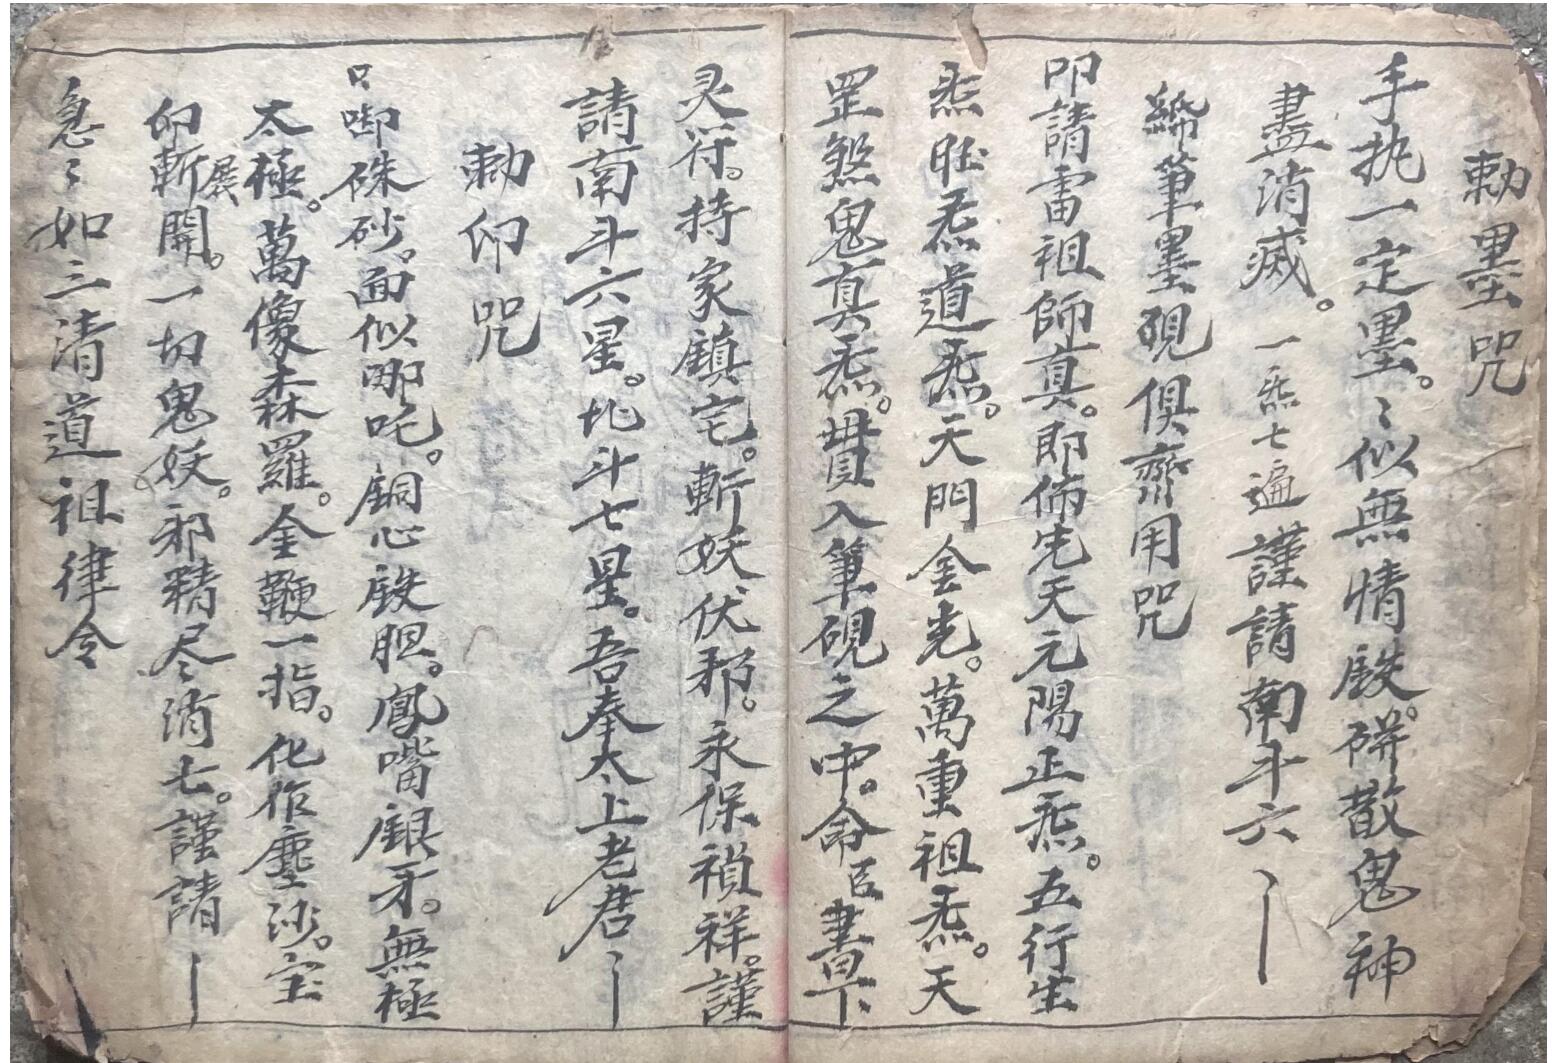 勅墨咒
手执一定墨。〻似無情殿。研散鬼神
盡消滅。一炁七遍謹請南斗六
筆墨硯俱齊用咒
叩請雷祖師真。即佈先天元陽正炁。五行生
炁旺炁道炁。天門金光。萬重祖炁。天
罡煞鬼真炁。貫入筆硯之中。命臣書下
灵符。持家鎮宅。斬妖伏邪。永保禎祥。謹
請南斗六星。北斗七星。吾奉太上老君
勅印咒
口啣硃砂。面似哪吒。銅心鉄胆。鳳嘴銀牙。無極
太極。萬像森羅。金鞭一指。化作塵沙。宝
印斬開。一切鬼妖。邪精尽消七。謹請
展
急〻如三清道祖律令